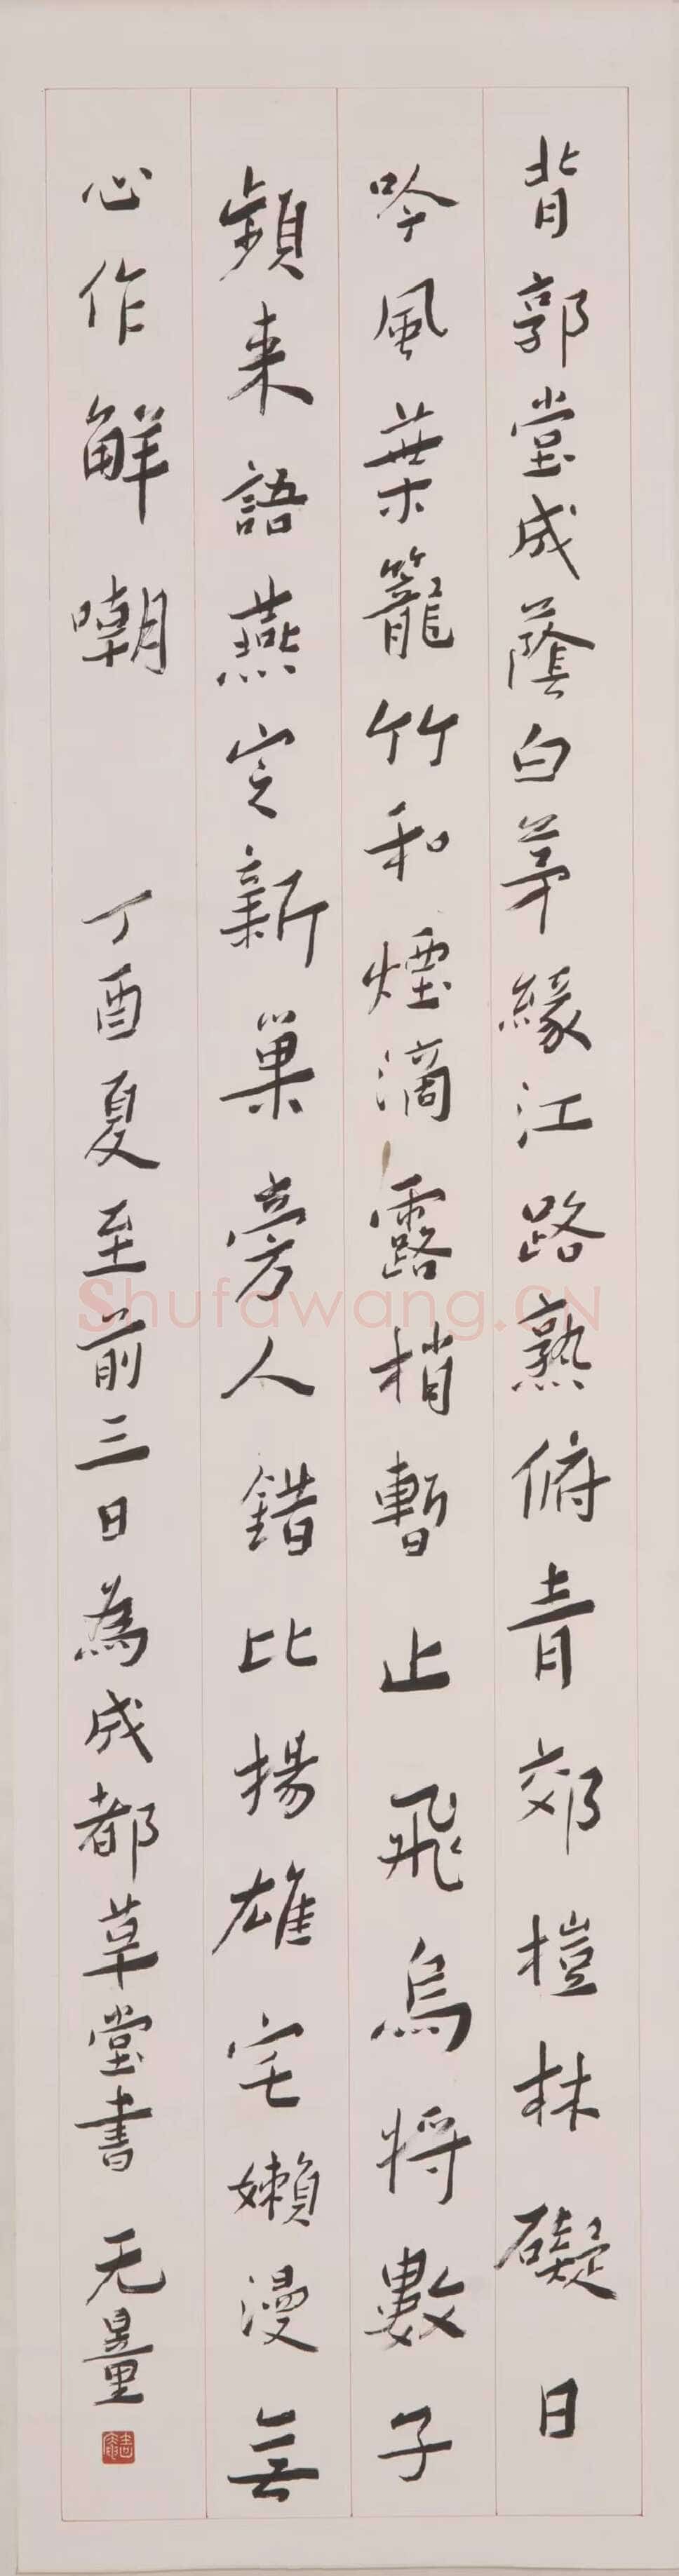 背郭堂成蔭白茅緣江路熟俯青郊榿林礙日
吟風葉籠竹和煙滴露梢暫止飛烏將數子
頻来語燕定新巢旁人錯比揚雄宅嬾漫無
心作解嘲 丁酉夏至前三日為成都草堂書 无量
Shufawang.CN